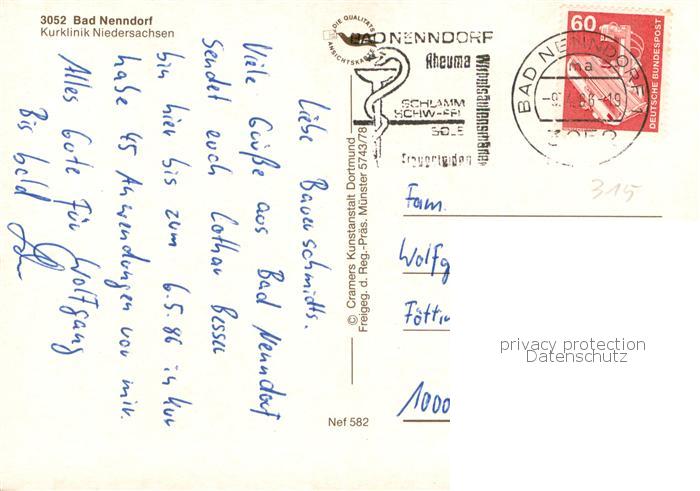 3052 Bad Nenndorf
Kurklinik Niedersachsen
DIE QUALITÄTS
ANSICHTSKARTE
BAD NENNDORF
Rheuma
Wirbelsäulensyndrome
SCHLAMM
SCHWEFEL
SOLE
Frauenleiden
BAD NENNDORF
ma
3052
60
DEUTSCHE BUNDESPOST
315
Liebe Bauerschmidts.
Viele Grüße aus Bad Nenndorf
Sendet euch Lothar Besser
bin hier bis zum 6.5.86 in Kur
habe 45 Anwendungen vor mir.
Alles Gute Für Wolfgang
Bis bald
© Cramers Kunstanstalt Dortmund
Freigeg. d. Reg.-Präs. Münster 5743/78
Nef 582
Fam.
Wolfg
Föttin
1000
privacy protection
Datenschutz